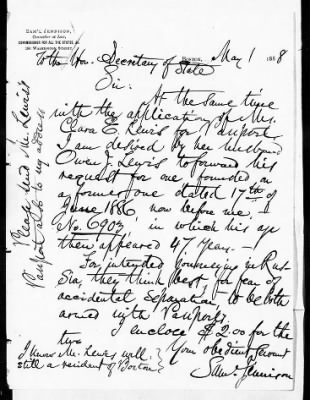 SAM'L JENNISON,
Counsellor at Law,
COMMISSIONER FOR ALL THE STATES, &c.
BOSTON, May 1 1888
To the Hon. Secretary of State
Sir:
At the same time
with the application of Mrs.
Clara E. Lewis for Passport
I am desired by her husband
Owen J. Lewis to forward his
request for one founded on
a former one dated 17th of
June 1886, now before me,
No. 6903, in which his age
then appeared 47 Years. —
For intended journeying in Rus-
sia, they think best, for fear of
accidental separation to be both
armed with Passports.
I enclose $2.00 for the
two
Your obedient servant
Saml Jennison
I know Mr. Lewis well:
still a resident of Boston
Please send Mr. Lewis's
Passport also to my address